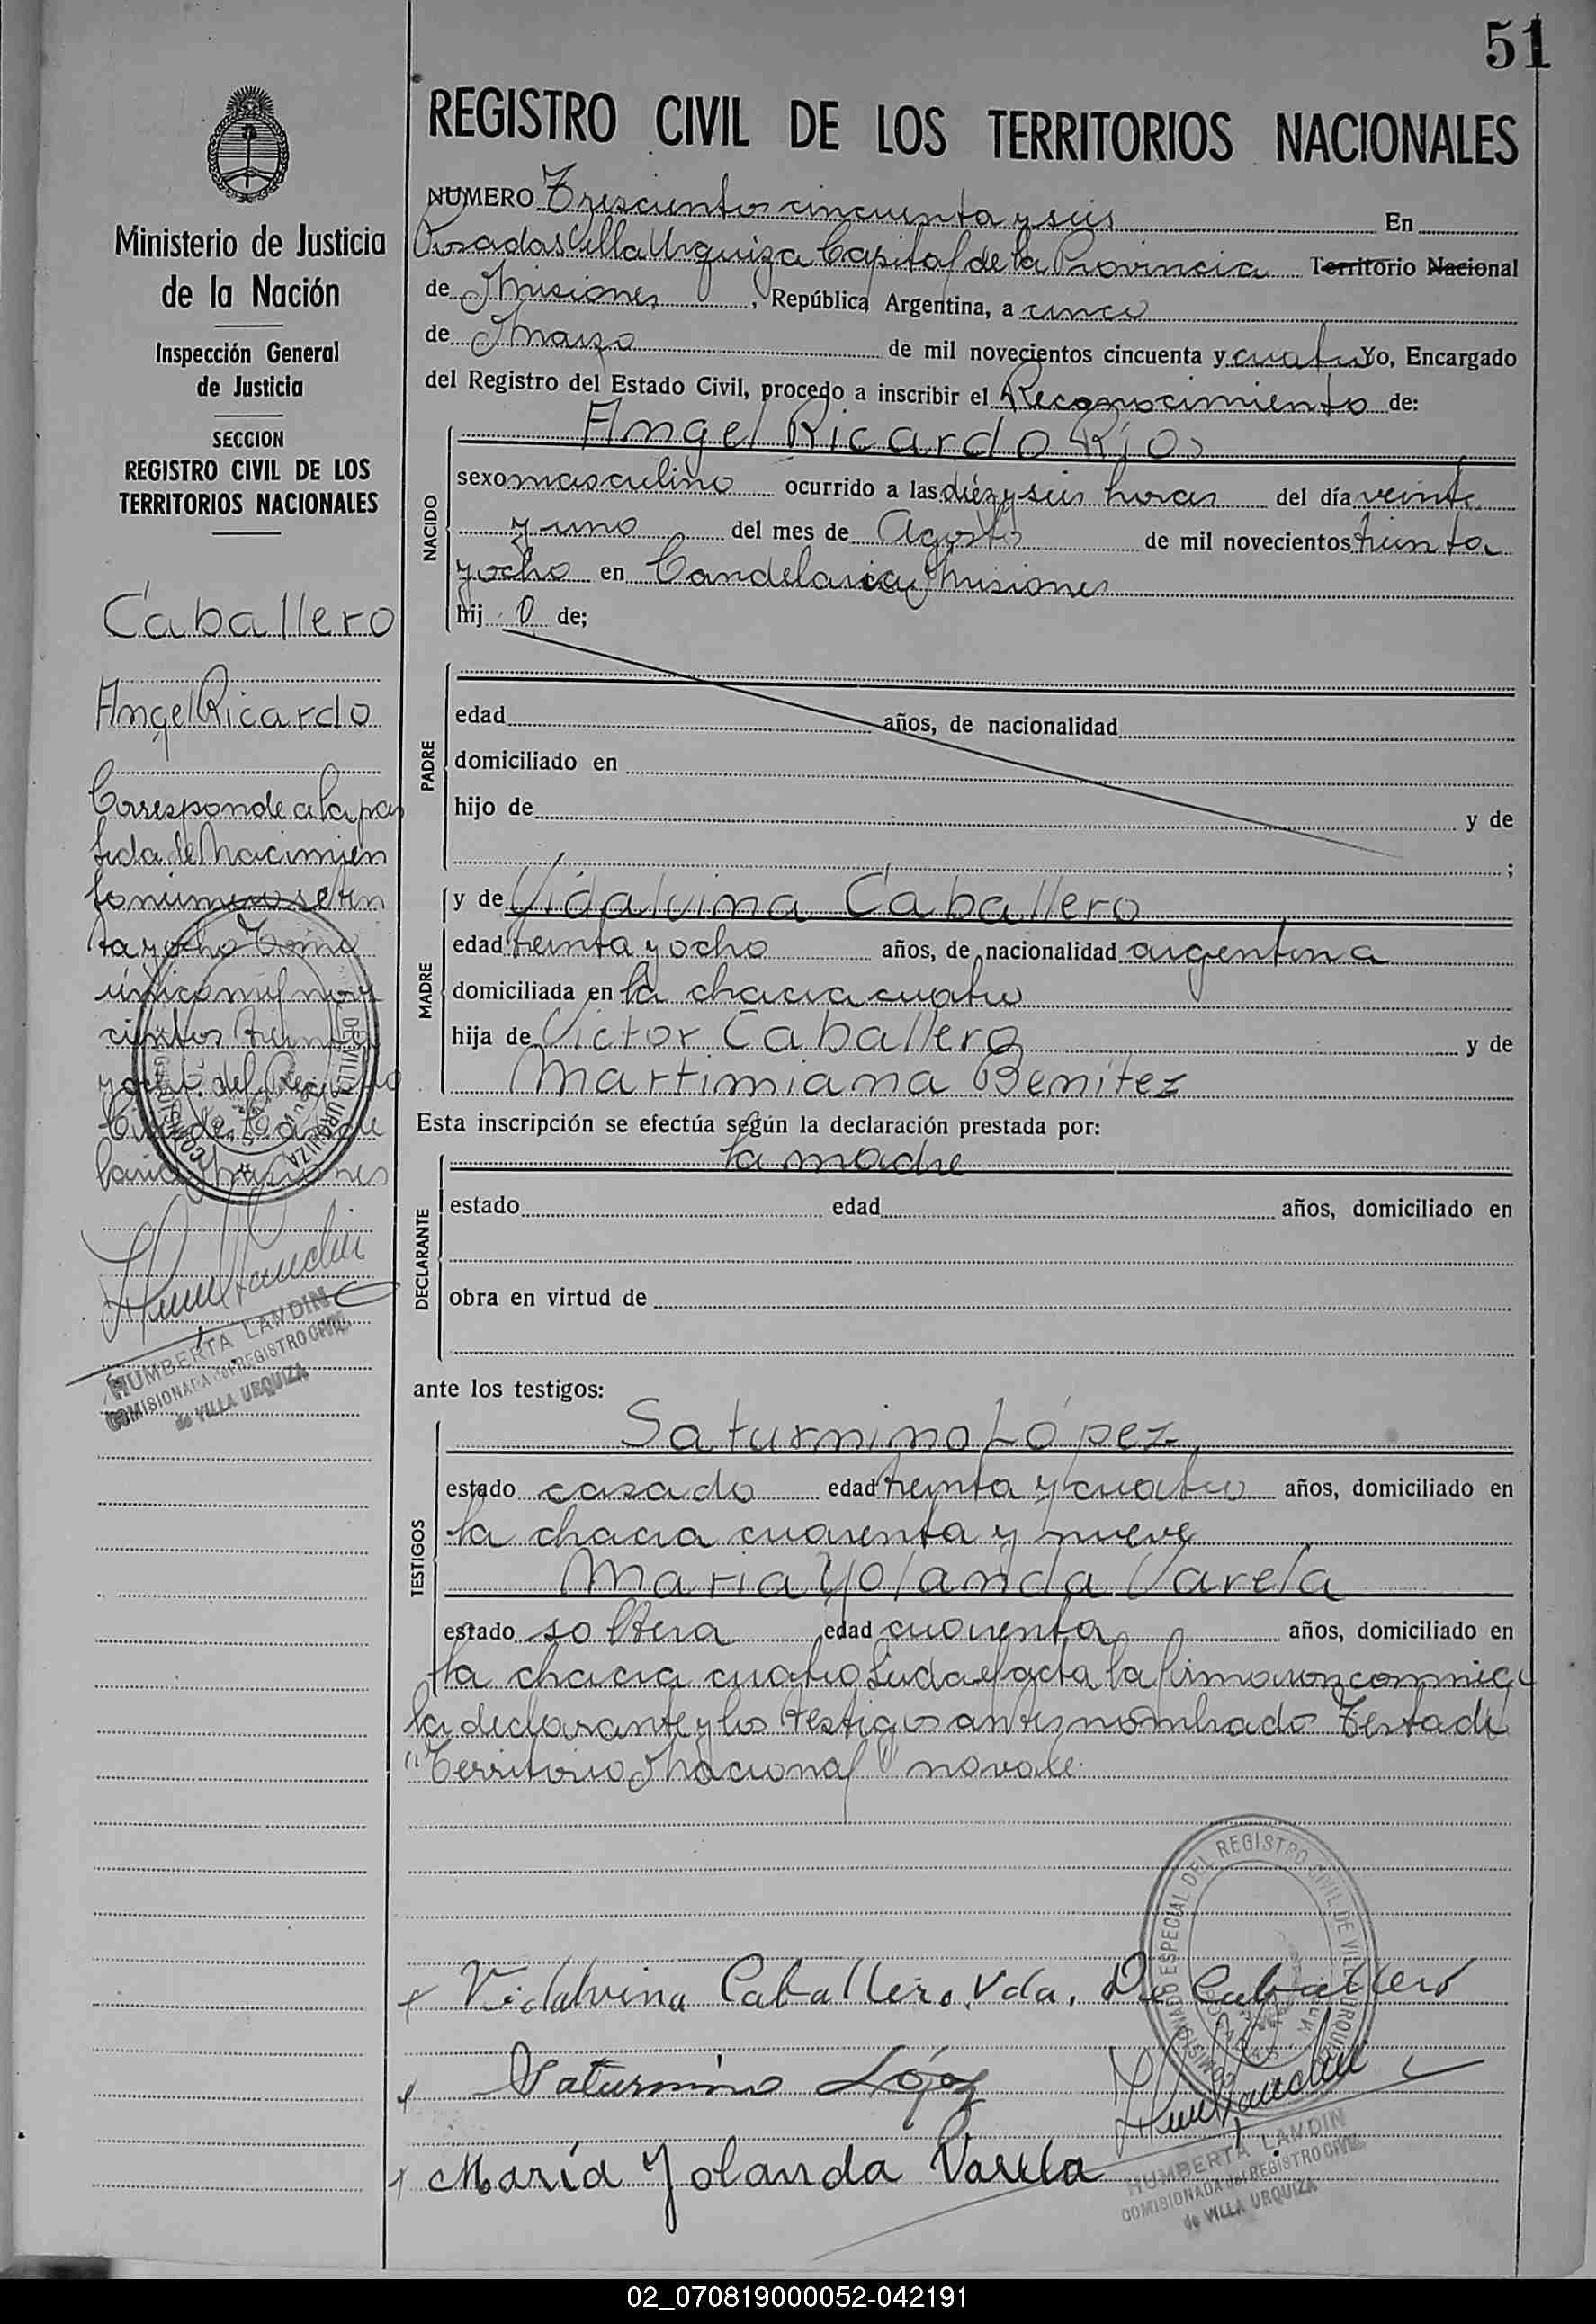 51
REGISTRO CIVIL DE LOS TERRITORIOS NACIONALES
Ministerio de Justicia
de la Nación
Inspección General
de Justicia
SECCION
REGISTRO CIVIL DE LOS
TERRITORIOS NACIONALES
Caballero
Angel Ricardo
Corresponde a la par
tida de Nacimien
to número seten
ta y ocho Tomo
único mil nove
cientos treinta
y ocho del Registro
Civil de Cande
laria Misiones
HUMBERTA LANDIN
COMISIONADA del REGISTRO CIVIL
de VILLA URQUIZA
NUMERO Trescientos cincuenta y seis En
Posadas Villa Urquiza Capital de la Provincia Territorio Nacional
de Misiones, República Argentina, a cinco
de Marzo de mil novecientos cincuenta y cuatro Yo, Encargado
del Registro del Estado Civil, procedo a inscribir el Reconocimiento de:
NACIDO
Angel Ricardo Ríos
sexo masculino ocurrido a las diez y seis horas del día veinte
y uno del mes de Agosto de mil novecientos treinta
y ocho en Candelaria Misiones
hij o de;
PADRE
edad años, de nacionalidad
domiciliado en
hijo de y de
;
MADRE
y de Vidalvina Caballero
edad treinta y ocho años, de nacionalidad argentina
domiciliada en la chacra cuatro
hija de Victor Caballero y de
Martimiana Benítez
Esta inscripción se efectúa según la declaración prestada por:
DECLARANTE
la madre
estado edad años, domiciliado en
obra en virtud de
ante los testigos:
TESTIGOS
Saturnino López
estado casado edad treinta y cuatro años, domiciliado en
la chacra cuarenta y nueve
Maria Yolanda Varela
estado soltera edad cuarenta años, domiciliado en
la chacra cuatro Leida el acta la firmaron conmigo
la declarante y los testigos antes nombrado Testado
"Territorio Nacional" no vale.
COMISIONADO ESPECIAL DEL REGISTRO CIVIL DE VILLA URQUIZA
POSADAS - Mnes
Vidalvina Caballero. Vda. De Caballero
Saturnino López
María Yolanda Varela
HUMBERTA LANDIN
COMISIONADA del REGISTRO CIVIL
de VILLA URQUIZA
02_070819000052-042191